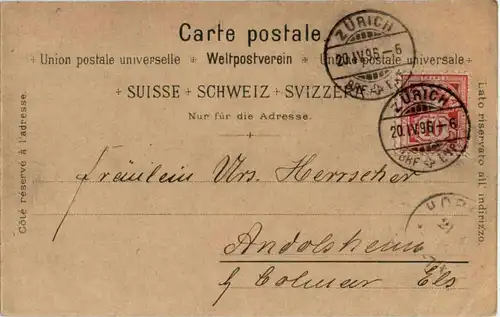 Carte postale.
Union postale universelle + Weltpostverein + Union postale universale
+ SUISSE + SCHWEIZ + SVIZZERA
Nur für die Adresse.
Côté réservé à l'adresse.
Lato riservato all' indirizzo.
ZÜRICH
20.IV.96.–6
BRF. EXP.
ZÜRICH
20.IV.96.–6
BRF. EXP.
Fräulein Urs. Herrscher
Andolsheim
b/ Colmar Els